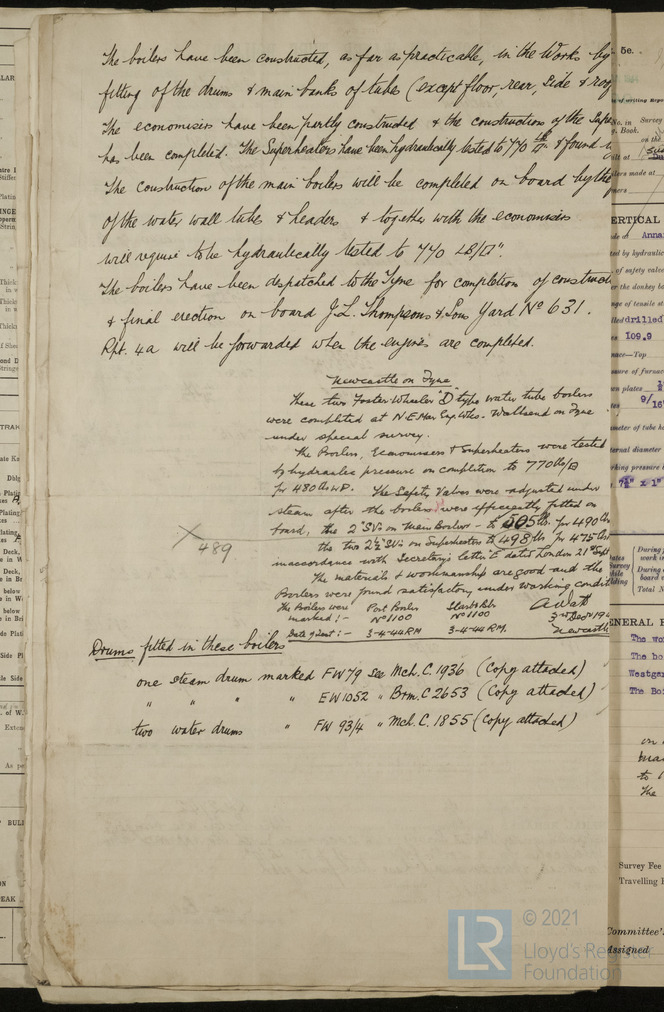 The boilers have been constructed, as far as practicable, in the Works by
fitting of the drums & main banks of tubes (except floor, rear, side & roof
The economisers have been partly constructed & the construction of the Supe
has been completed. The Superheaters have been hydraulically tested to 770 lb/□" & found
The construction of the main boilers will be completed on board by the
of the water wall tubes & headers & together with the economisers
will require to be hydraulically tested to 770 LB/□".
The boilers have been despatched to the Tyne for completion of constructi
& final erection on board J.L. Thompsons & Sons Yard No 631.
Rpt. 4a will be forwarded when the engines are completed.
Newcastle on Tyne
These two Foster Wheeler "D" type water tube boilers
were completed at N.E. Mar. Eng. Wks. Wallsend on Tyne
under special survey.
The Boilers, Economisers & Superheaters were tested
by hydraulic pressure on completion to 770 lbs/□
for 480 lbs WP. The Safety Valves were adjusted under
steam after the boilers were efficiently fitted on
board, the 2" SVs on Main Boilers - to 505 lbs. for 490 lbs
the two 2½" SVs on Superheaters to 498 lbs. for 475 lbs
in accordance with Secretary's letter E dated London 21st Sept
The materials & workmanship are good and the
Boilers were found satisfactory under working condit
X 489
The Boilers were Port Boiler Starbd Blr
marked :- No 1100 No 1100
Date of Test :- 3-4-44 RM. 3-4-44 RM.
A Watt
3rd Decr 194
Newcastle
Drums fitted in these boilers
one steam drum marked FW79 see Mch. C. 1936 (Copy attached)
" " " " EW1052 " Brm. C 2653 (Copy attached)
two water drums " FW 93/4 " Mch. C. 1855 (Copy attached)
5e.
of writing Rep
Survey
Book.
on the
ERTICAL
Anna
ed by hydraulic
of safety valve
the donkey b
nge of tensile st
drilled
109.9
ace—Top
plates
9/16
ernal diameter
rking pressure
7½" x 1"
During
work i
During
board
Total N
ENERAL
The wo
The bo
Westgar
The Boi
to
The
Survey Fee
Travelling
Committee'
Assigned
© 2021
LR
Lloyd's Register
Foundation